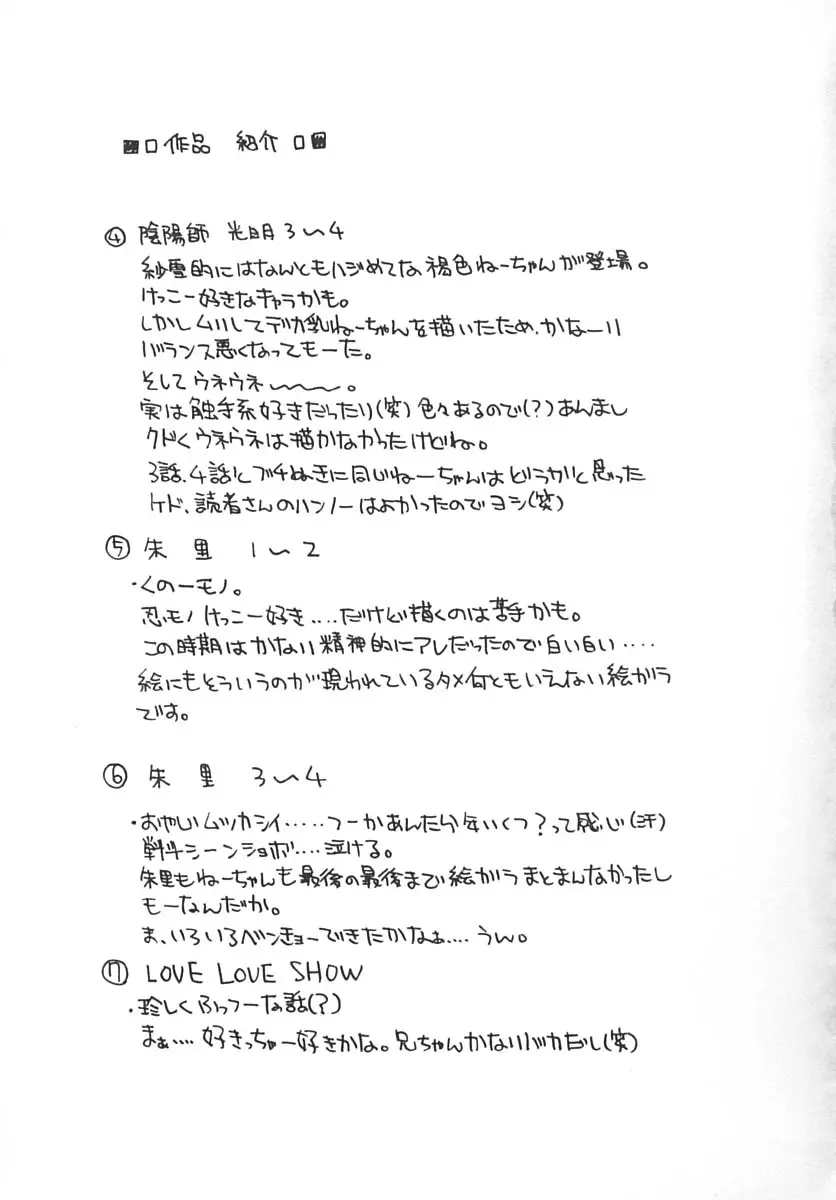 ■□作品 紹介□■
④陰陽師 光明3〜4
紗雪的にはなんともハジめてな褐色ねーちゃんが登場。
けっこー好きなキャラかも。
しかしムリしてデカ乳ねーちゃんを描いたため、かなーり
バランス悪くなってもーた。
そしてウネウネ〜〜〜。
実は触手系好きだったり(笑)色々あるので(?)あんまし
クドくウネウネは描かなかったけどね。
3話、4話とブチぬきに同じねーちゃんはどうかと思った
ケド、読者さんのハンノーはよかったのでヨシ(笑)
⑤朱里 1〜2
・くの一モノ。
忍モノけっこー好き‥‥だけど描くのは苦手かも。
この時期はかなり精神的にアレだったので白い白い‥‥
絵にもそういうのが現われているタメ何ともいえない絵ガラ
です。
⑥朱里 3〜4
・おやじムツカシイ‥‥‥つーかあんたら年いくつ?って感じ(汗)
戦斗シーンショボ‥‥泣ける。
朱里もねーちゃんも最後の最後まで絵がうまとまんなかったし
もーなんだか。
ま、いろいろベンキョーできたかなぁ‥‥うん。
⑦LOVE LOVE SHOW
・珍しくふっつーな話(?)
まぁ‥‥好きっちゃー好きかな。兄ちゃんかなりバカだし(笑)